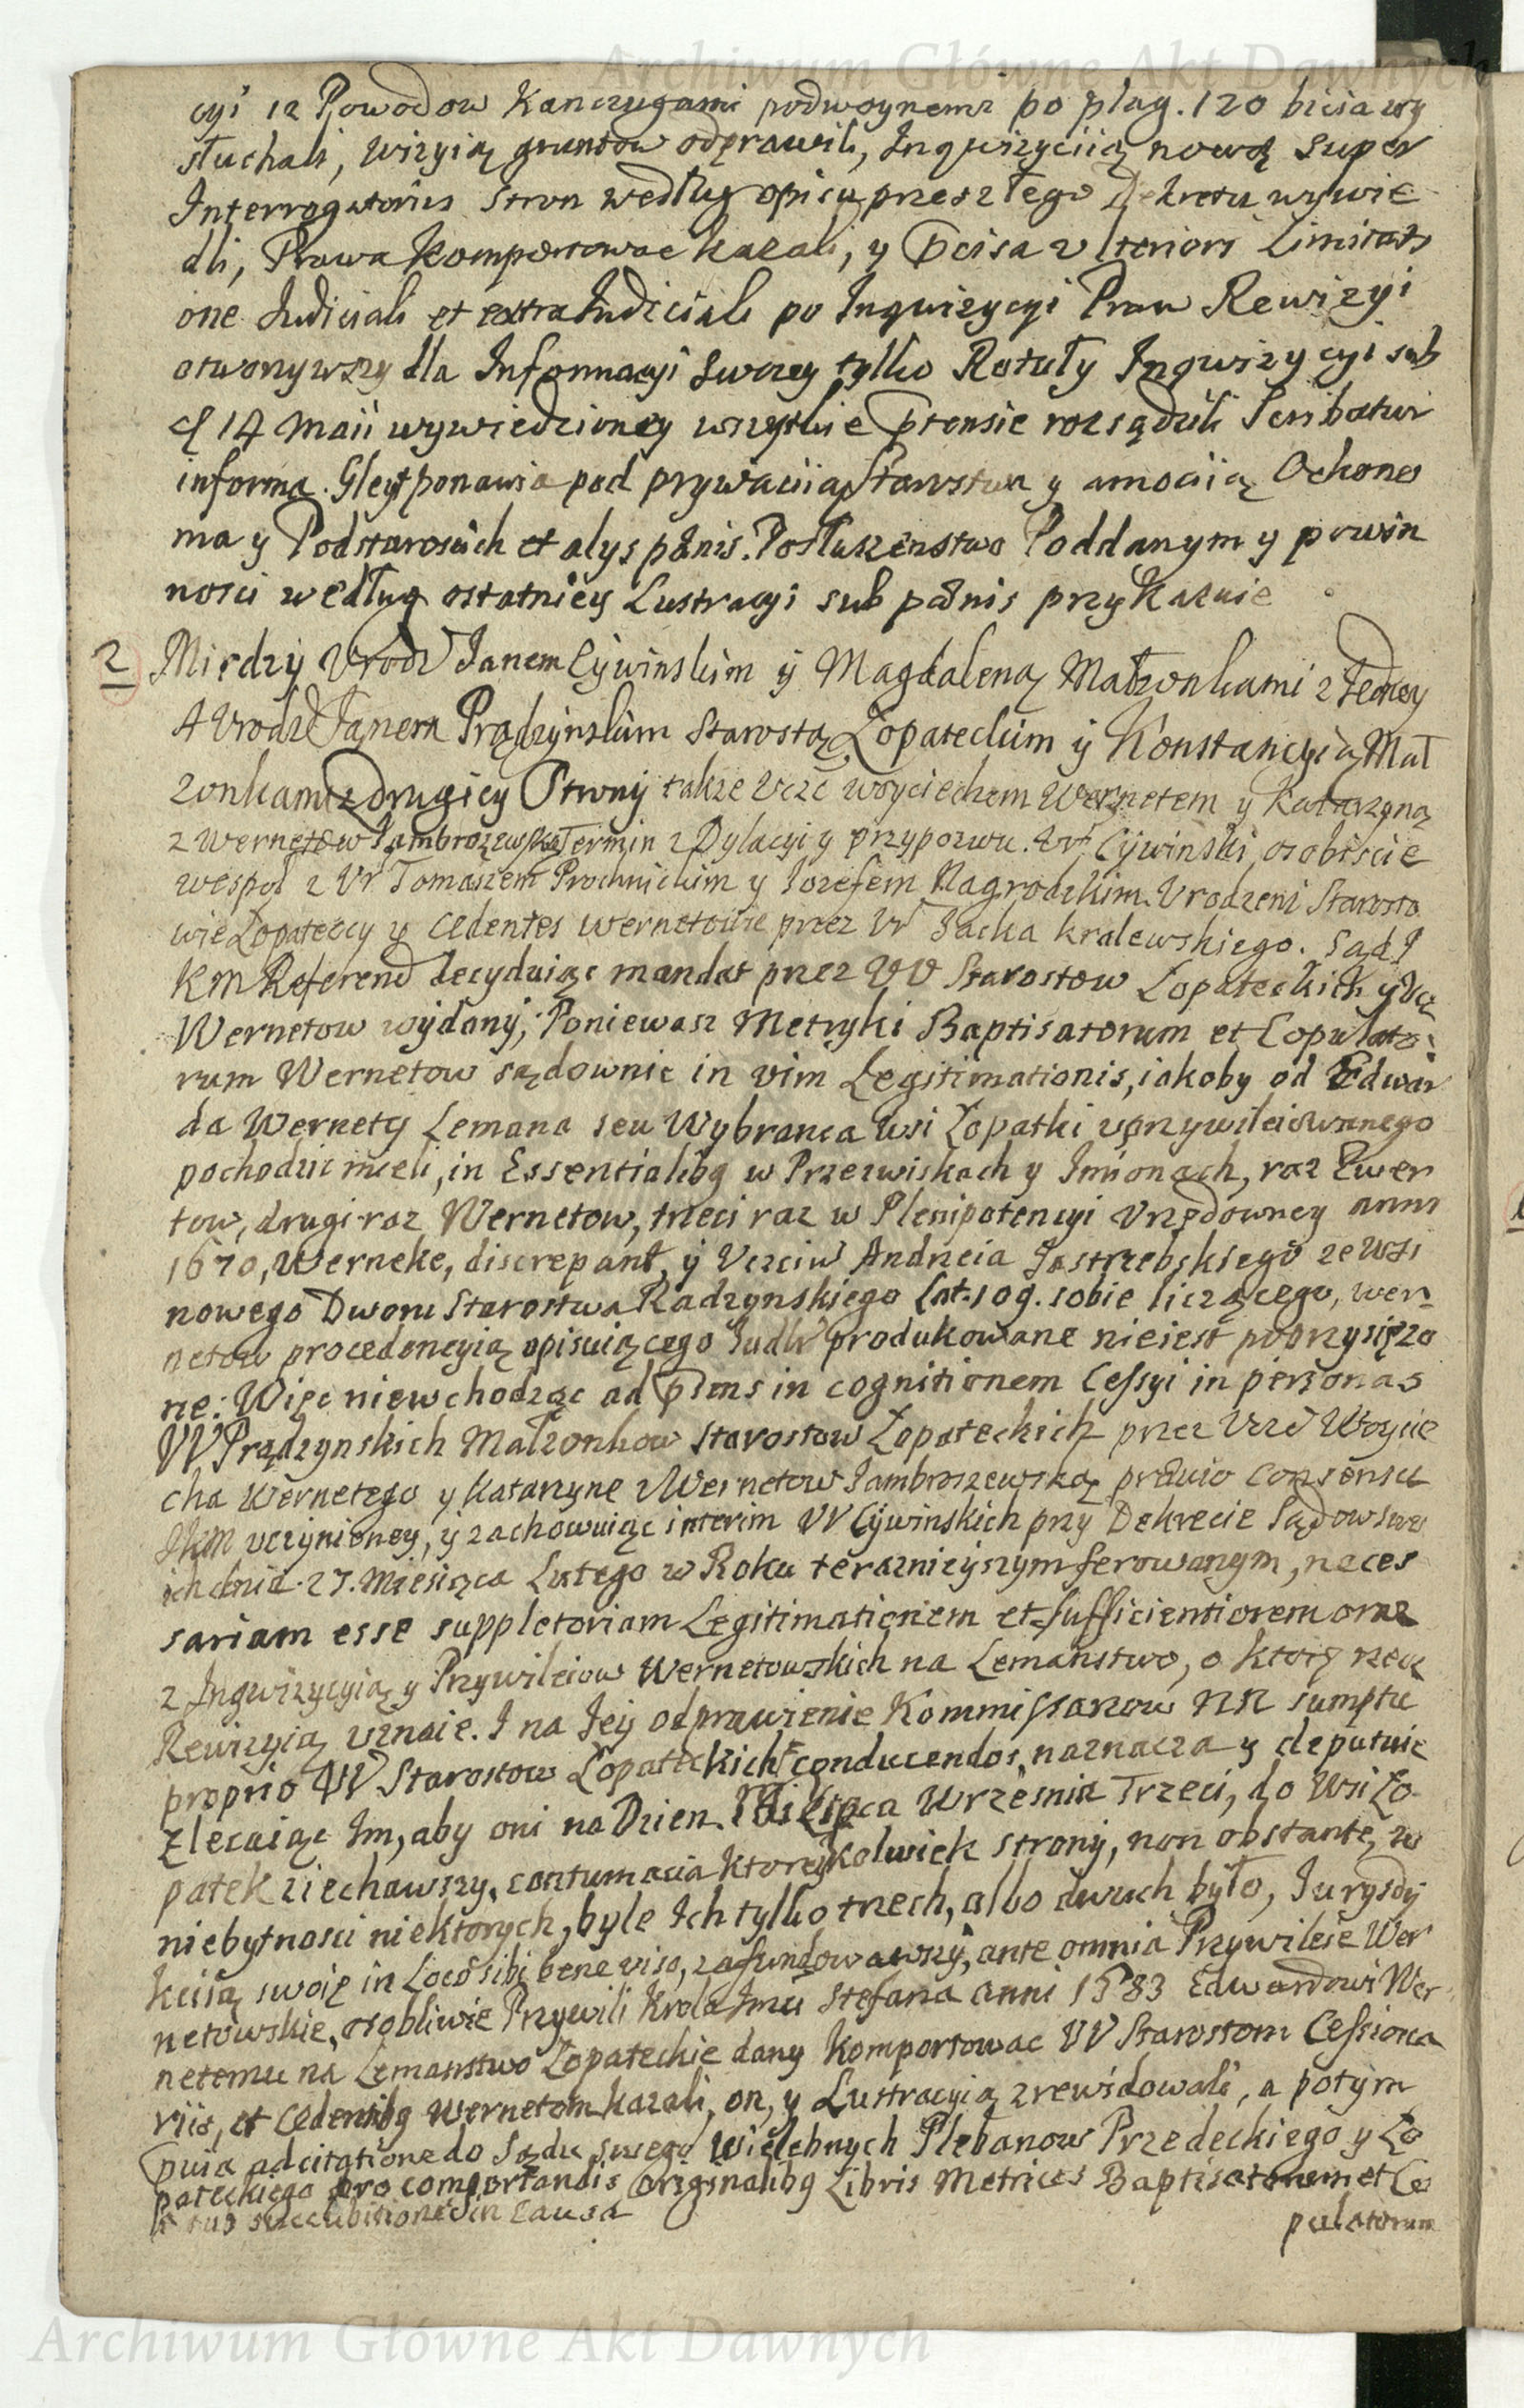 Archiwum Główne Akt Dawnych
cyi 12 Powodow Kanczugami podwoynemi po plag. 120 bicia wy
słuchali, wizyią gruntow odprawili, Inqwizyciią nową super
Interrogatoriis stron według opisu przeszłego Dekretu wywie
dli, Prawa Komportowac kazali, y Pcisa ulteriori Limitati
one Judiciali et extraJudiciali po Inqwizycyi Praw Rewizyi
otworzywszy dla Informacyi swoiey tylko Rotuły Inqwizycyi sub
d 14 Maii wywiedzioney wszystkie ptensie rozsądzili Scribatur
informa. Gleyt ponawia pod prywaciią Starostwa y amociią Oekono
ma y Podstaroscich et alys pænis. Posłuszenstwo Poddanym y powin
nosci według ostatniey Lustracyi sub pænis przykazuie
2 Miedzy Urodz Janem Cywinskim y Magdaleną Małzonkami z Jedney
A Urodz Janem Prądzynskim Starostą Łopateckim y Konstancyią Mał
zonkami z drugiey Strony takze Uczc Woyciechem Wernetem y Katarzyną
z Wernetow Jambrozewską Termin z Dylacyi y przypozwu. Ur Cywinski osobiscie
wespoł z Ur Tomaszem Prochnickim y Jozefem Nagrodzkim. Urodzeni Starosto
wie Łopateccy y Cedentes Wernetowie przez Ur Jacka Kralewskiego. Sąd J
KM Referend decyduiąc mandat przez UU Starostow Łopateckich y Ucz
Wernetow wydany; Poniewasz Metryki Baptisatorum et Copulato:
rum Wernetow sądownie in vim Legitimationis, iakoby od Edwar
da Wernety Lemana seu Wybranca Wsi Łopatki uprzywileiowanego
pochodzic mieli, in Essentialibq w Przezwiskach y Imionach, raz Ewer
tow, drugi raz Wernetow, trzeci raz w Plenipotencyi Urzędowney anni
1670, Werneke, discrepant, y Uczciw Andrzeia Jastrzebskiego ze Wsi
nowego Dworu Starostwa Radzynskiego Lat. 109. sobie liczącego, Wer=
netow procedencyią opisuiącego Judlr produkowane nieiest poprzysięzo
ne: Więc niewchodząc ad pſens in cognitionem Cessyi in personas
UU Prądzynskich Małzonkow Starostow Łopateckich przez Uczc Woycie
cha Wernetego y Katarzyne z Wernetow Jambroszewską prævio consensu
JKM uczynioney, y zachowuiąc interim UU Cywinskich przy Dekrecie Sądow swo
ich dnia 27. Miesiąca Lutego w Roku teraznieyszym ferowanym, neces
sariam esse suppletoriam Legitimationem et sufficientiorem oraz
z Inqwizycyią y Przywileiow Wernetowskich na Lemanstwo, o ktorę rzecz
Rewizyią uznaie. I na Jey odprawienie Kommissarzow NN sumptu
proprio UU Starostow Łopateckich conducendos, naznacza y deputuie
zlecaiąc Im, aby oni na Dzien Miesiąca Wrzesnia Trzeci, do Wsi Ło
patek ziechawszy, contumacia ktoreykolwiek strony, non obstante, w
niebytnosci niektorych, byle Ich tylko trzech, albo dwuch było, Jurysdy
kciią swoię in Loco sibi bene viso, zafundowawszy, ante omnia Przywileie Wer
netowskie, osobliwie Przywili Krola Jmci Stefana anni 1583 Edwardowi Wer
netemu na Lemanstwo Łopateckie dany Komportowac UU Starostom Cessiona
riis, et Cedentibq Wernetom kazali, on, y Lustracyią zrewidowali, a potym
pvia adcitatione do Sądu swego Wielebnych Plebanow Przedeckiego y Ło
pateckiego pro comportandis originalibq Libris Metrices Baptisatorum et Co
sub succubitione in Causa
pulatorum
Archiwum Główne Akt Dawnych